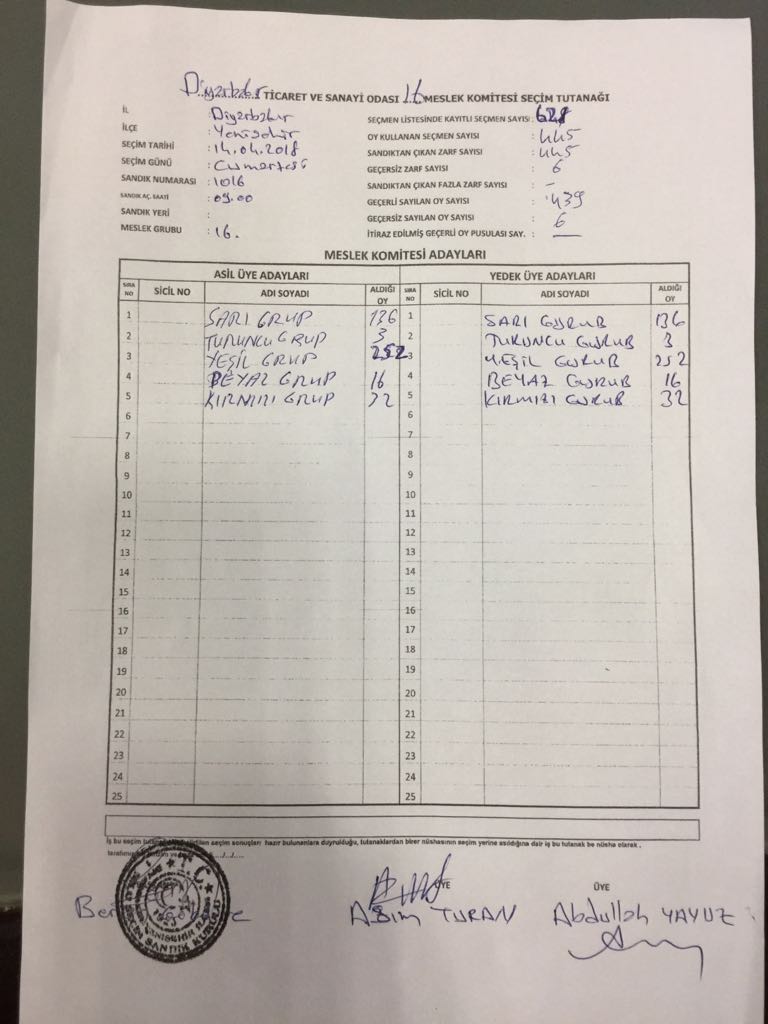 Diyarbakır TİCARET VE SANAYİ ODASI 16 MESLEK KOMİTESİ SEÇİM TUTANAĞI
İL : Diyarbakır
İLÇE : Yenişehir
SEÇİM TARİHİ : 14.04.2018
SEÇİM GÜNÜ : Cumartesi
SANDIK NUMARASI : 1016
SANDIK AÇ. SAATİ : 09.00
SANDIK YERİ :
MESLEK GRUBU : 16.
SEÇMEN LİSTESİNDE KAYITLI SEÇMEN SAYISI: 628
OY KULLANAN SEÇMEN SAYISI : 445
SANDIKTAN ÇIKAN ZARF SAYISI : 445
GEÇERSİZ ZARF SAYISI : 6
SANDIKTAN ÇIKAN FAZLA ZARF SAYISI : -
GEÇERLİ SAYILAN OY SAYISI : 439
GEÇERSİZ SAYILAN OY SAYISI : 6
İTİRAZ EDİLMİŞ GEÇERLİ OY PUSULASI SAY. : —
MESLEK KOMİTESİ ADAYLARI
ASİL ÜYE ADAYLARI YEDEK ÜYE ADAYLARI
SIRA NO SİCİL NO ADI SOYADI ALDIĞI OY SIRA NO SİCİL NO ADI SOYADI ALDIĞI OY
1 SARI GRUP 136 1 SARI GURUB 136
2 TURUNCU GRUP 3 2 TURUNCU GURUB 3
3 YEŞİL GRUP 252 3 YEŞİL GURUB 252
4 BEYAZ GRUP 16 4 BEYAZ GURUB 16
5 KIRMIZI GRUP 32 5 KIRMIZI GURUB 32
6 6
7 7
8 8
9 9
10 10
11 11
12 12
13 13
14 14
15 15
16 16
17 17
18 18
19 19
20 20
21 21
22 22
23 23
24 24
25 25
İş bu seçim seçim sonuçları hazır bulunanlara duyrulduğu, tutanaklardan birer nüshasının seçim yerine asıldığına dair iş bu tutanak be nüsha olarak .
ÜYE ÜYE
Asım TURAN Abdullah YAVUZ